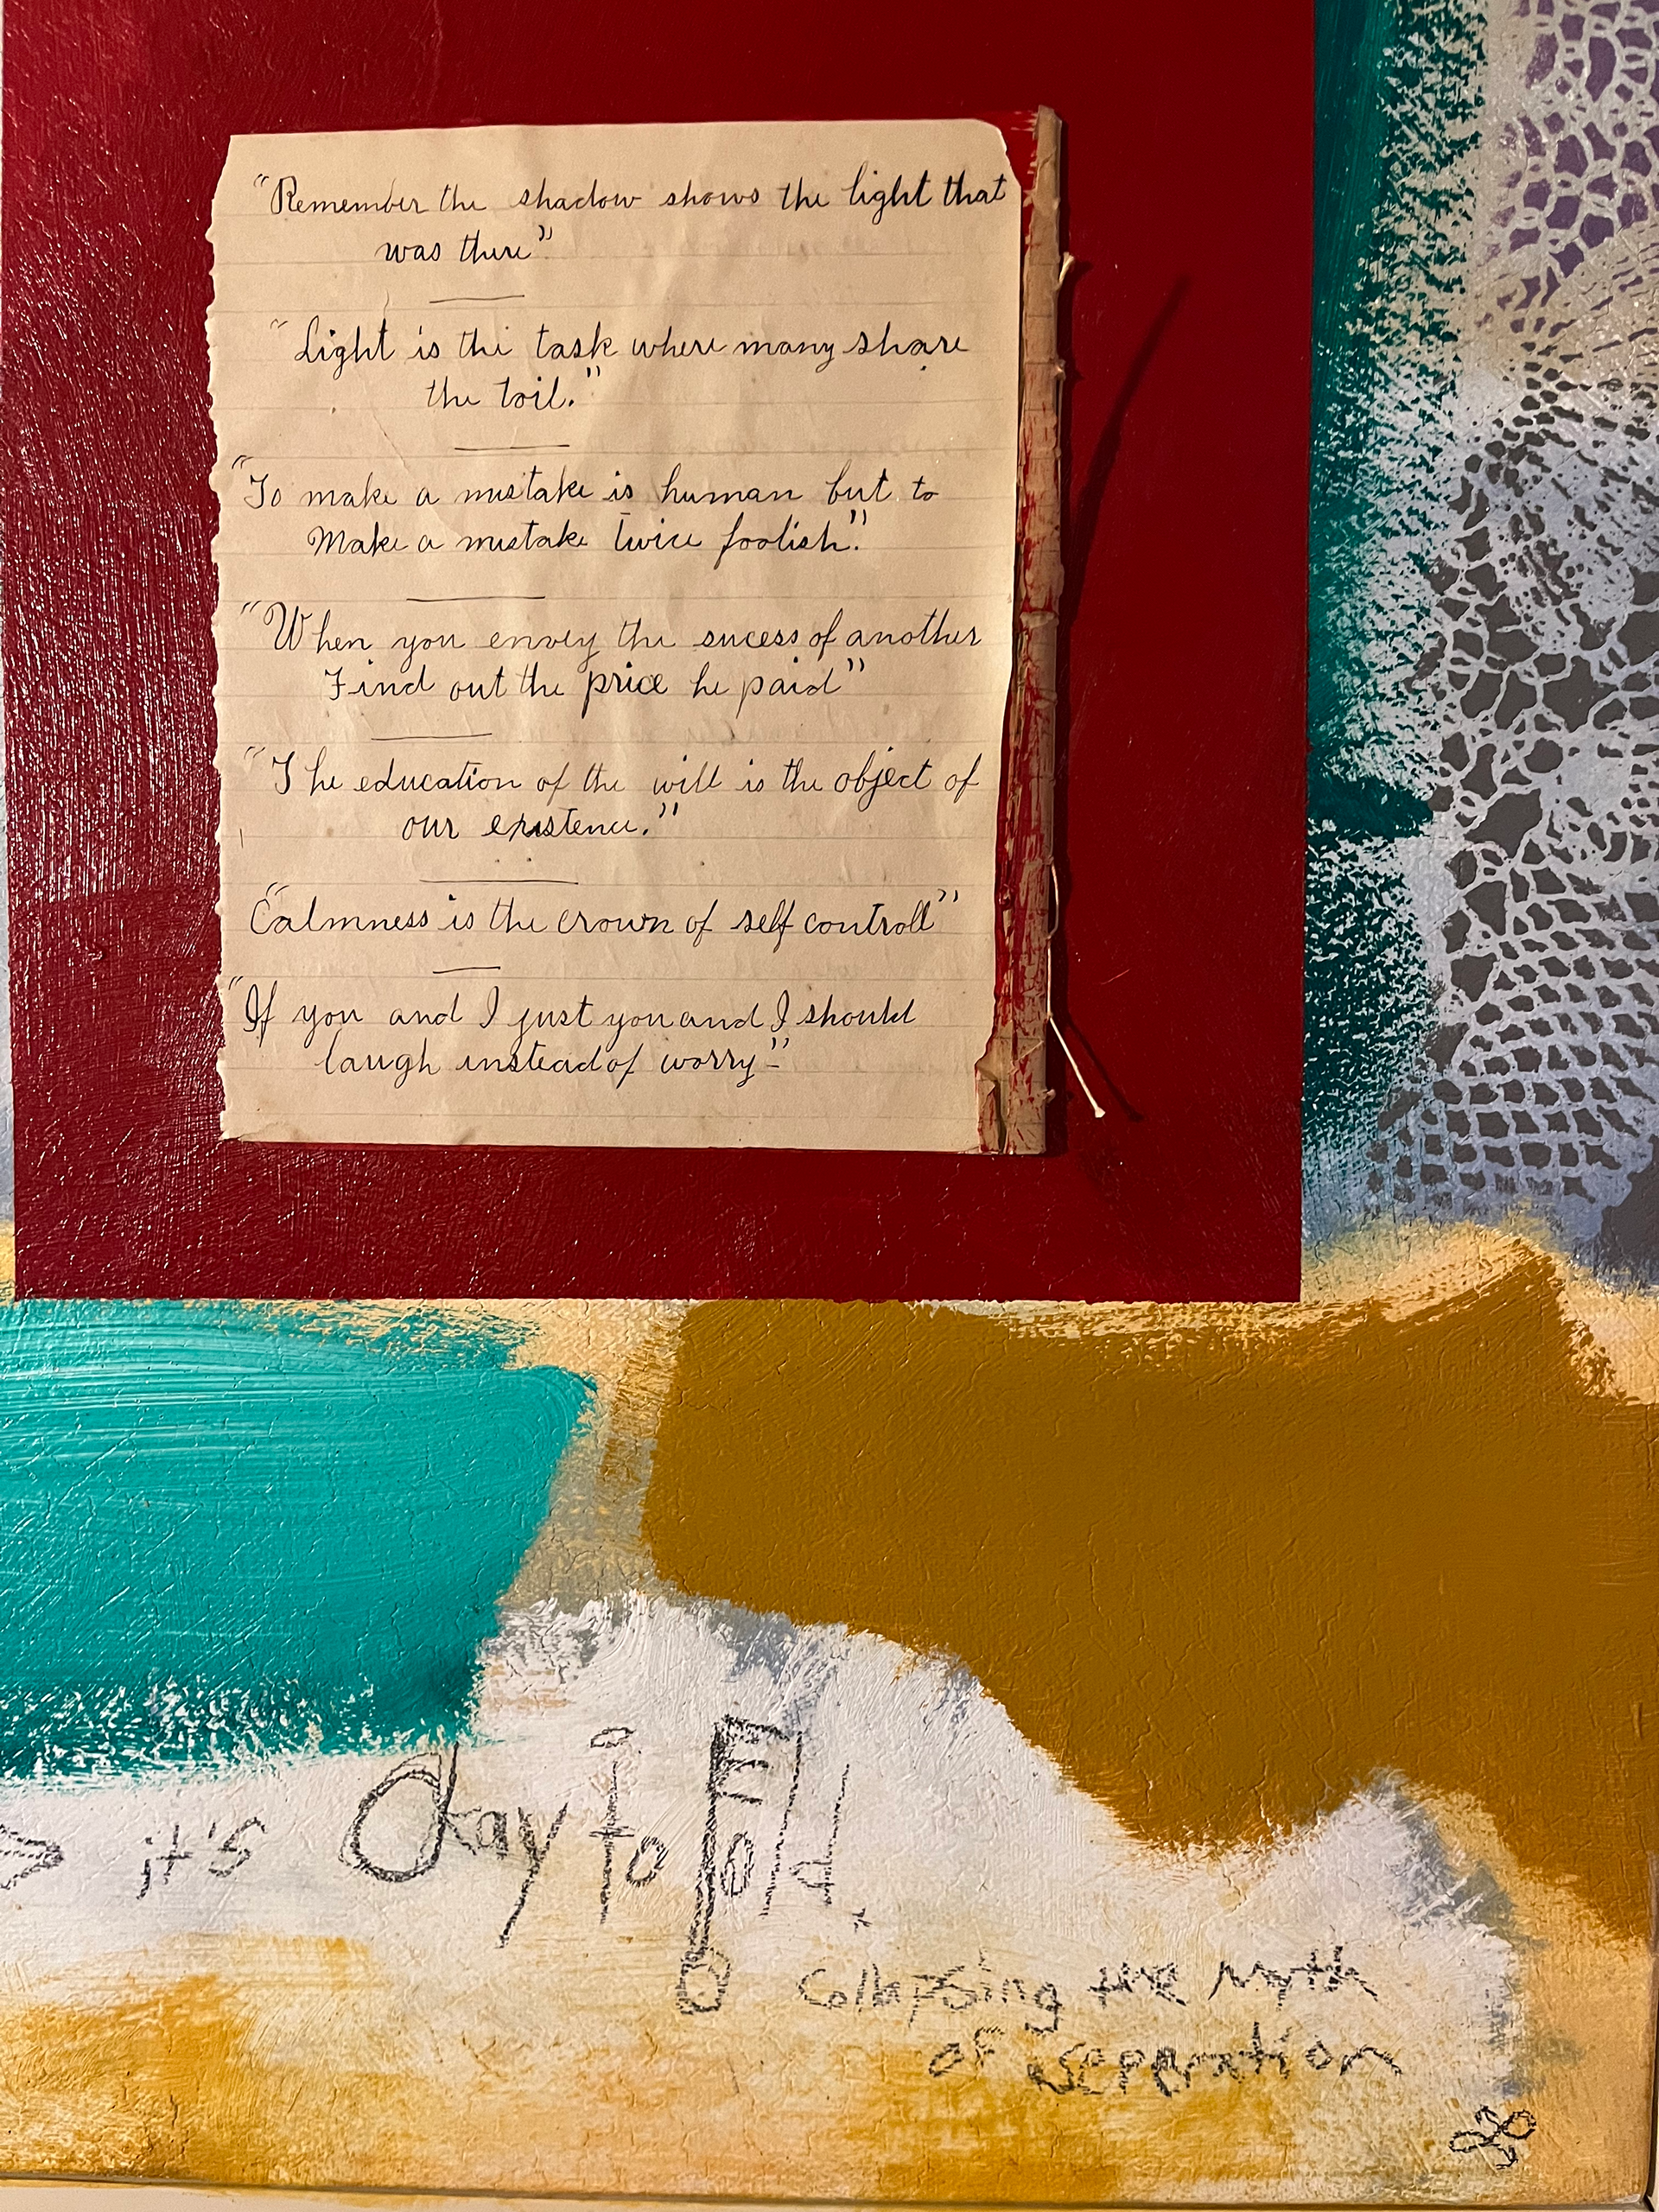 "Remember the shadow shows the light that
was there"
"Light is the task where many share
the toil."
"To make a mistake is human but to
Make a mistake twice foolish."
"When you envey the sucess of another
Find out the price he paid"
"The education of the will is the object of
our existence."
"Calmness is the crown of self controll"
"If you and I just you and I should
laugh instead of worry-"
it's Okay to Fold.
Collapsing the myth
of seperation